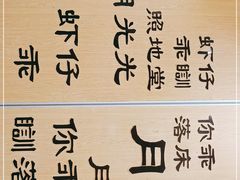 虾仔
你乖
乖瞓
落床
照地堂
月
光光
月
虾仔
你乖
乖
瞓落